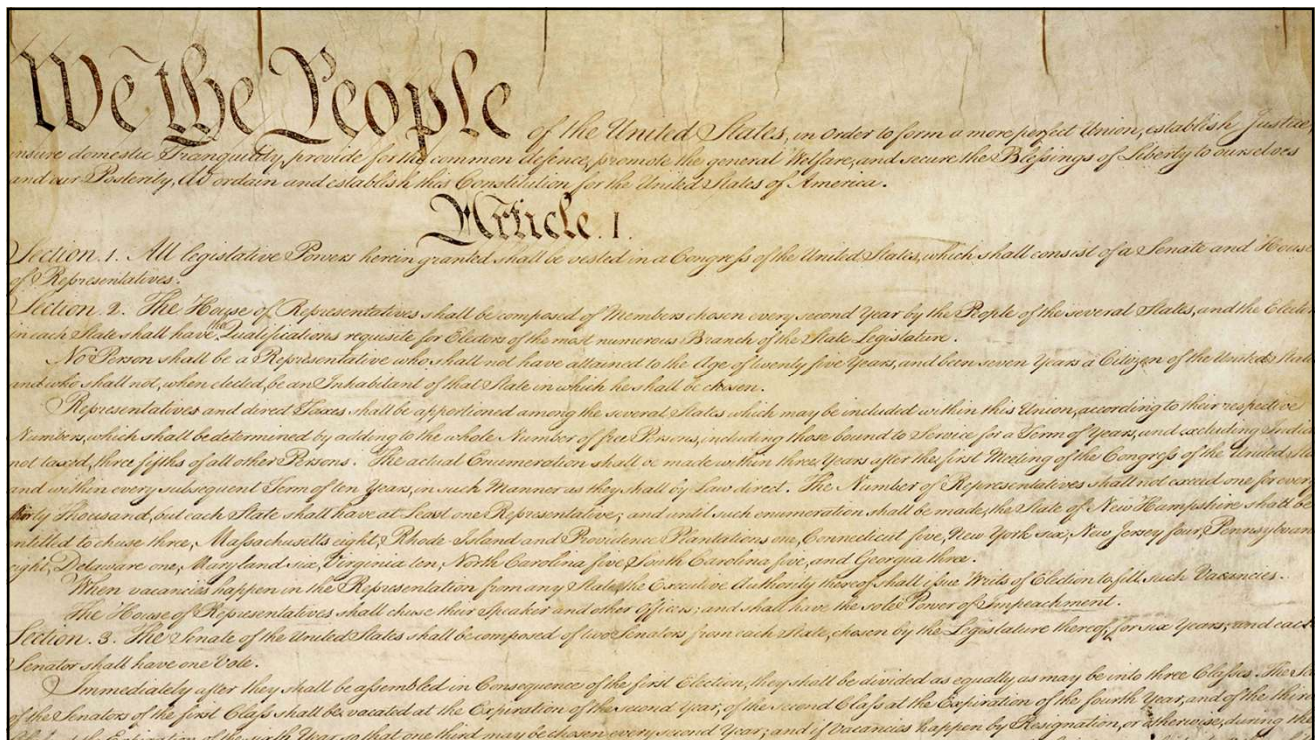 We the People of the United States, in Order to form a more perfect Union, establish Justice,
insure domestic Tranquility, provide for the common defence, promote the general Welfare, and secure the Blessings of Liberty to ourselves
and our Posterity, do ordain and establish this Constitution for the United States of America.
Article. I.
Section. 1. All legislative Powers herein granted shall be vested in a Congress of the United States, which shall consist of a Senate and House
of Representatives.
Section. 2. The House of Representatives shall be composed of Members chosen every second Year by the People of the several States, and the Electors
in each State shall have the Qualifications requisite for Electors of the most numerous Branch of the State Legislature.
No Person shall be a Representative who shall not have attained to the Age of twenty five Years, and been seven Years a Citizen of the United States,
and who shall not, when elected, be an Inhabitant of that State in which he shall be chosen.
Representatives and direct Taxes shall be apportioned among the several States which may be included within this Union, according to their respective
Numbers, which shall be determined by adding to the whole Number of free Persons, including those bound to Service for a Term of Years, and excluding Indians
not taxed, three fifths of all other Persons. The actual Enumeration shall be made within three Years after the first Meeting of the Congress of the United States,
and within every subsequent Term of ten Years, in such Manner as they shall by Law direct. The Number of Representatives shall not exceed one for every
thirty Thousand, but each State shall have at Least one Representative; and until such enumeration shall be made, the State of New Hampshire shall be
entitled to chuse three, Massachusetts eight, Rhode-Island and Providence Plantations one, Connecticut five, New York six, New Jersey four, Pennsylvania
eight, Delaware one, Maryland six, Virginia ten, North Carolina five, South Carolina five, and Georgia three.
When vacancies happen in the Representation from any State, the Executive Authority thereof shall issue Writs of Election to fill such Vacancies.
The House of Representatives shall chuse their Speaker and other Officers; and shall have the sole Power of Impeachment.
Section. 3. The Senate of the United States shall be composed of two Senators from each State, chosen by the Legislature thereof, for six Years; and each
Senator shall have one Vote.
Immediately after they shall be assembled in Consequence of the first Election, they shall be divided as equally as may be into three Classes. The
of the Senators of the first Class shall be vacated at the Expiration of the second Year, of the second Class at the Expiration of the fourth Year, and of the third
Class at the Expiration of the sixth Year, so that one third may be chosen every second Year; and if Vacancies happen by Resignation, or otherwise, during the